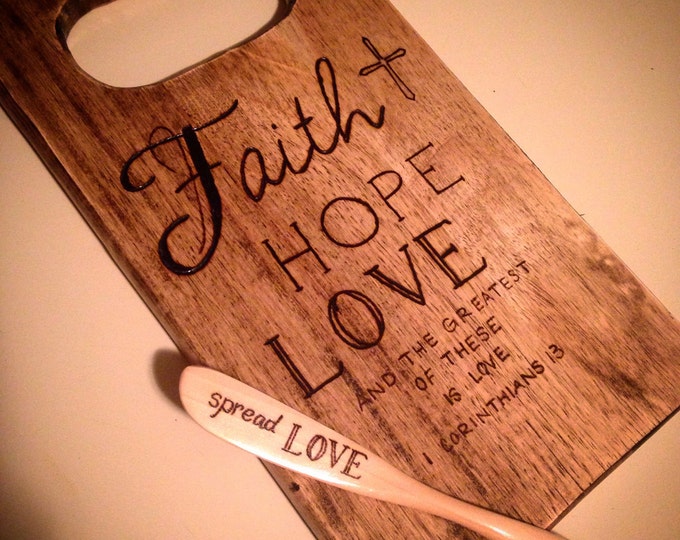 Faith
HOPE
LOVE
AND THE GREATEST
OF THESE
IS LOVE
1 CORINTHIANS 13
spread LOVE